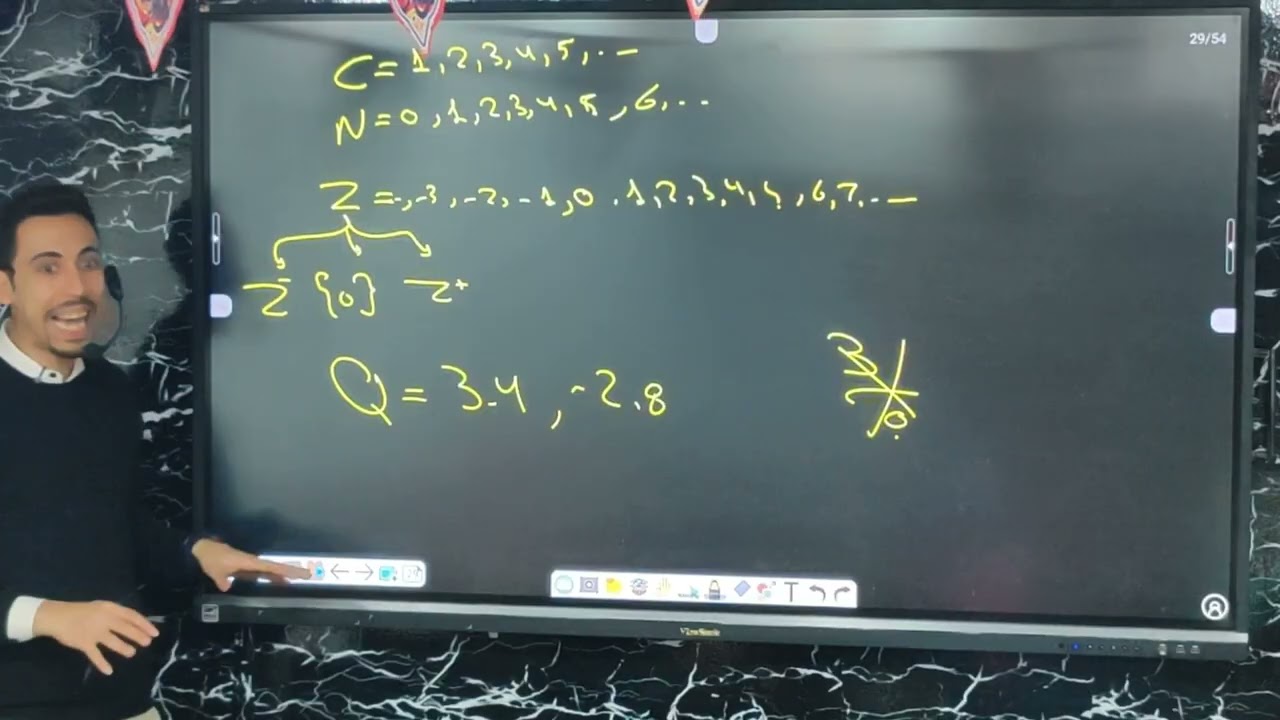 29/54
C = 1, 2, 3, 4, 5, . . —
N = 0, 1, 2, 3, 4, 5, 6, . . .
Z = -, -3, -2, -1, 0, 1, 2, 3, 4, 5, 6, 7, . . —
Z⁻ {0} Z⁺
Q = 3.4, -2.8
3/0
T
ViewSonic